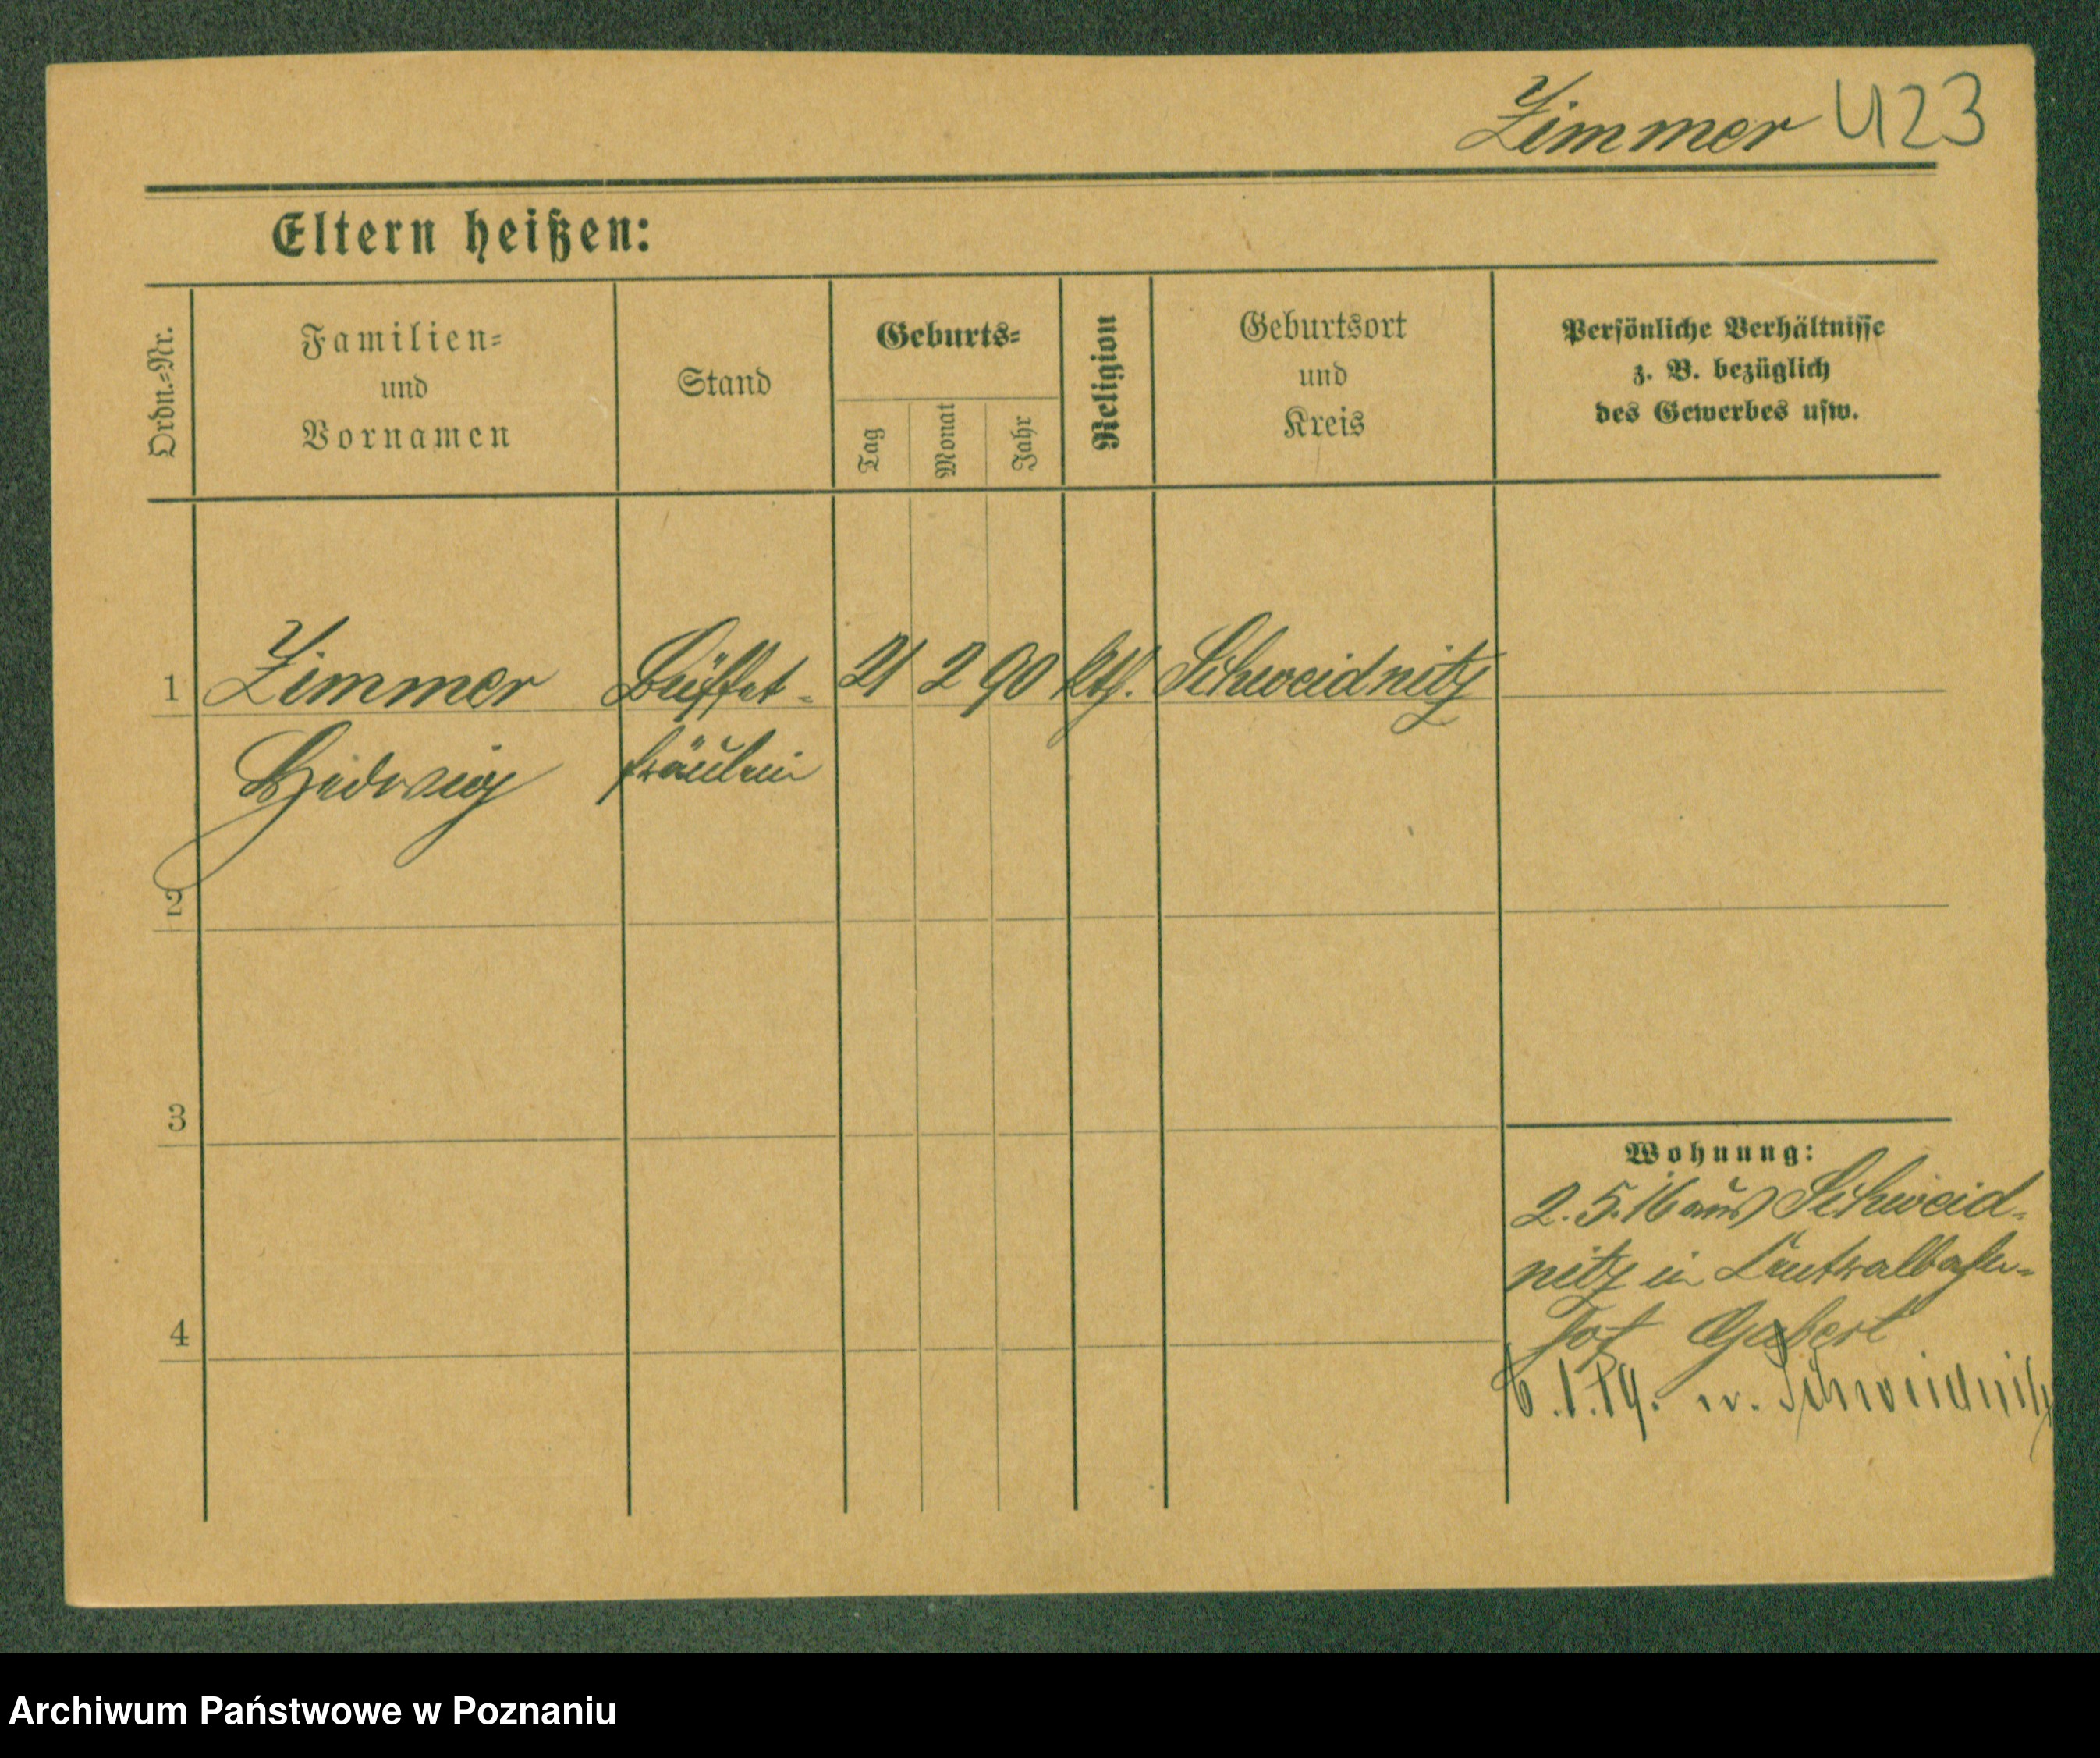 Zimmer 423
Eltern heißen:
Ordn.=Nr.
Familien=
und
Vornamen
Stand
Geburts=
Tag
Monat
Jahr
Religion
Geburtsort
und
Kreis
Persönliche Verhältnisse
z. B. bezüglich
des Gewerbes usw.
1 Zimmer Büffet- 21 2 90 kth. Schweidnitz
Hedwig fräulein
2
3
4
Wohnung:
2.5.16 aus Schweid-
nitz in Zentralbahn-
hof
6.1.19. n. Schweidnitz
Archiwum Państwowe w Poznaniu